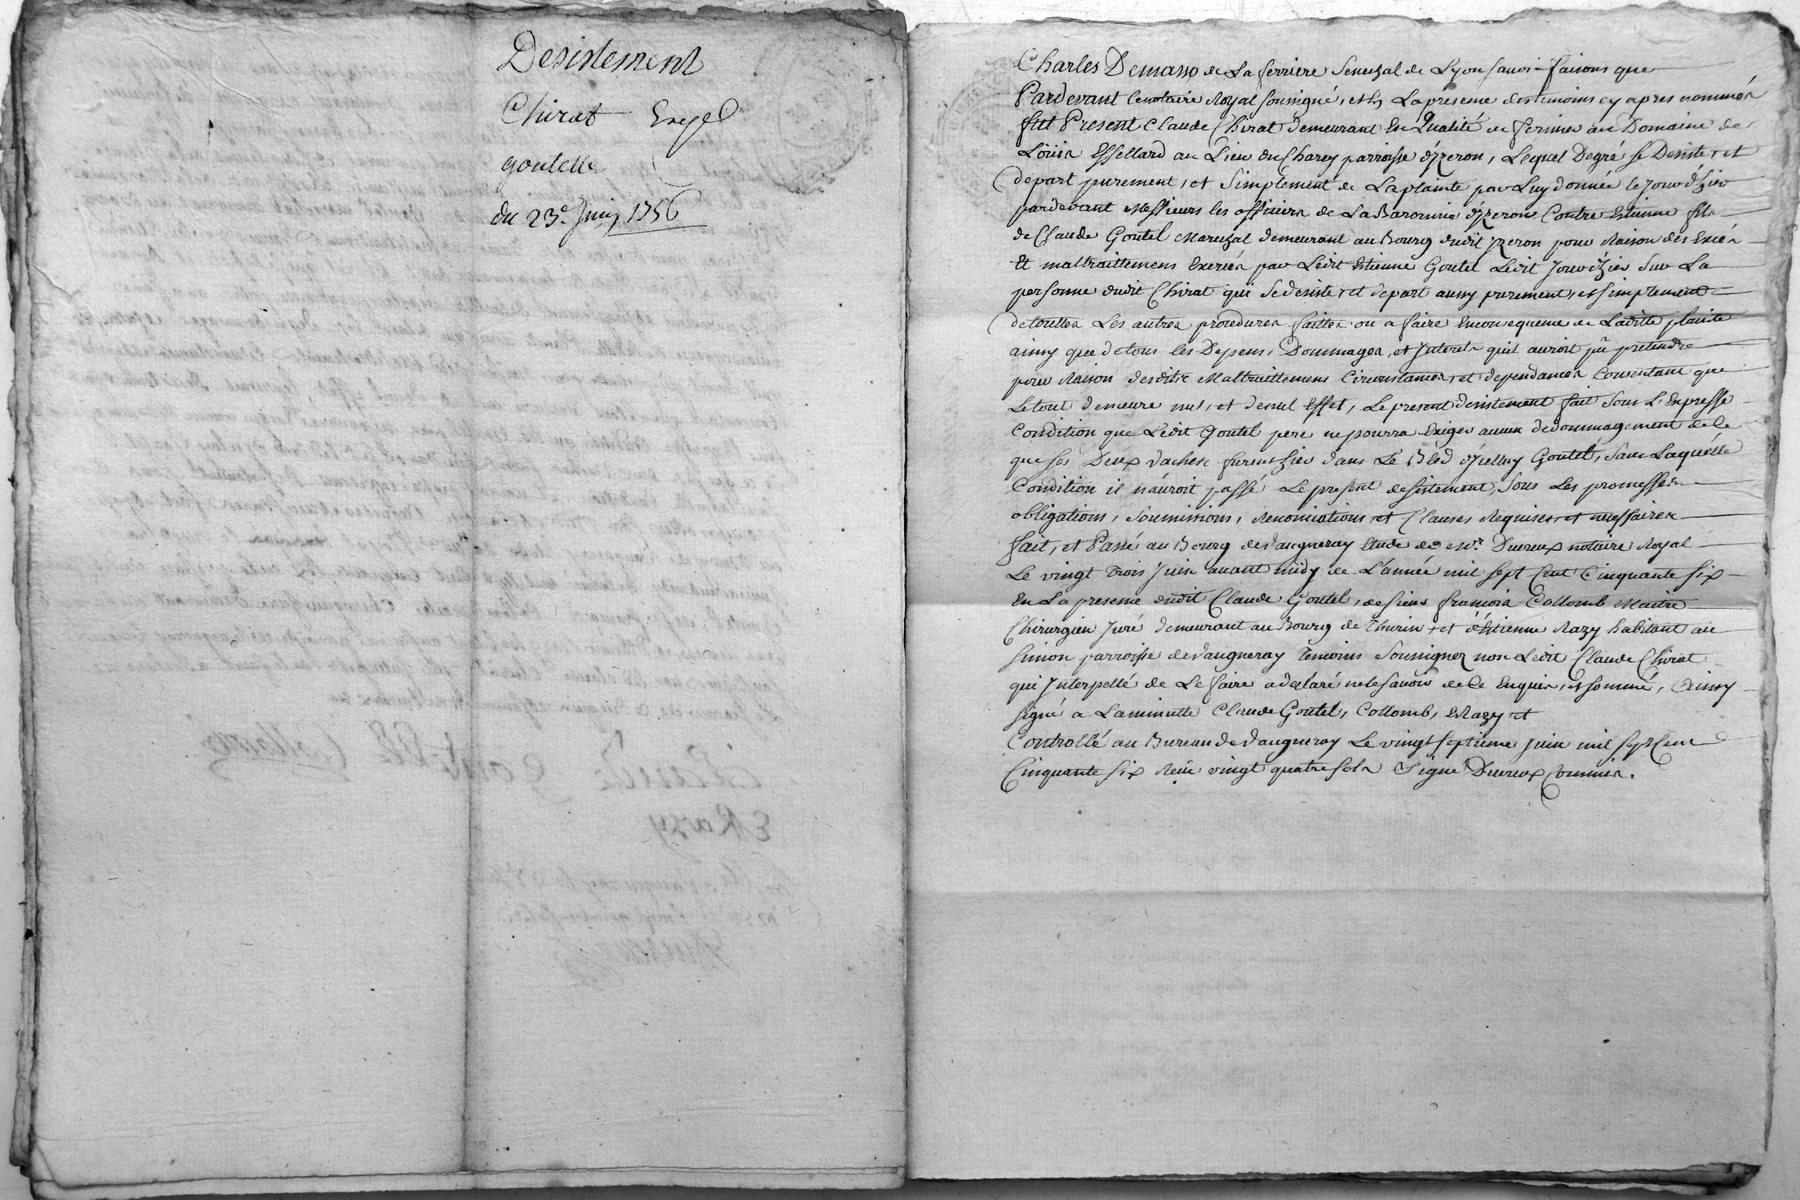 Desistement
Chirat Exped
goutelle
du 23e. Juin 1756
Charles Demasso de La ferriere Senechal de Lyon Savoir faisons que
Pardevant le notaire Royal soussigné, et En La presence des temoins cy apres nommés
fut Present Claude Chirat demeurant En Qualité de fermier au Domaine de
Loüis Essellard au Lieu du Charey parroisse d'yzeron, Lequel Degré se Desiste, et
depart purement, et Simplement de Laplainte par Luy donnée le jour d'hier
pardevant Messieurs les officiers de La Baronnie d'yzeron Contre Estienne fils
de Claude Goutel Marechal demeurant au Bourg dudit yzeron pour Raison des Excés
Et maltraittemens Exercés par Ledit Estienne Goutel Ledit Jour d'hier Sur La
personne dudit Chirat qui Se desiste, et depart aussy purement, et simplement
detouttes Les autres procedures faittes ou a faire Enconsequence de Laditte plainte
ainsy que detous les Depens, Dommages, et Interets quil auroit pû pretendre
pour Raison desdits Maltraittemens Circonstances, et dependances Consentant que
Letout demeure nul, et denul Effet, Le present desistement fait Sous L'Expresse
Condition que Ledit Goutel pere ne pourra Exiger aucun dedommagement de ce
que ses Deux vaches furent hier dans Le Bled d'icelluy Goutel, Sans Laquelle
Condition il n'auroit passé Le present desistement, Sous Les promesses
obligations, Soumissions, Renonciations et Clauses Requises et necessaires
fait, et Passé au Bourg de Vaugneray Etude de Me. Ducreux notaire Royal
Le vingt trois Juin avant midy de L'année mil sept Cent Cinquante six
En La presence dudit Claude Goutel, de sieur françois Collomb Maitre
Chirurgien Juré demeurant au Bourg de Thurin, et d'Estienne Razy habitant au
Simon parroisse de Vaugneray temoins Soussignez non Ledit Claude Chirat
qui Interpellé de Le faire a declaré ne le savoir de ce Enquis, et sommé, Ainsy
signé a Laminutte Claude Goutel, Collomb, E Razy et
Controllé au Bureau de Vaugneray Le vingt septieme Juin mil sept Cent
Cinquante six Reçu vingt quatre sols Signé Ducreux Commis.